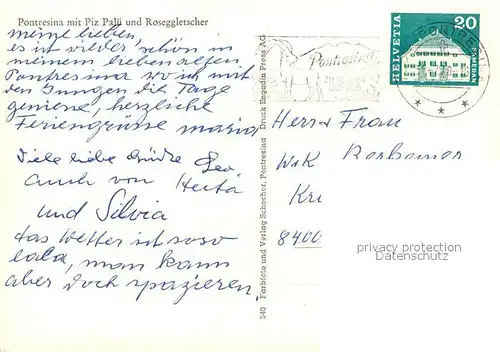 Pontresina mit Piz Palü und Roseggletscher
meine lieben,
es ist wieder schön in
meinem lieben alten
Pontresina wo ich mit
den Jungen die Tage
geniesse, herzliche
Feriengrüsse maria
Viele liebe Grüsse Leo
auch von Herta
und Silvia
das Wetter ist soso
lala, man kann
aber doch spazieren.
540 Farbfoto und Verlag Schocher, Pontresina Druck Engadin Press AG
Pontresina
HELVETIA
20
SAMEDAN
PONTRESINA
Herr & Frau
8400
privacy protection
Datenschutz